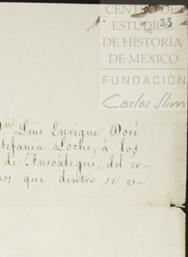 CENTRO DE
ESTUDIOS
DE HISTORIA
DE MEXICO
FUNDACIÓN
Carlos Slim
33
Dn. Luis Enrique Doré
tefania Loche, á los
de Ansoátegui, del co-
nos que dentro se es-